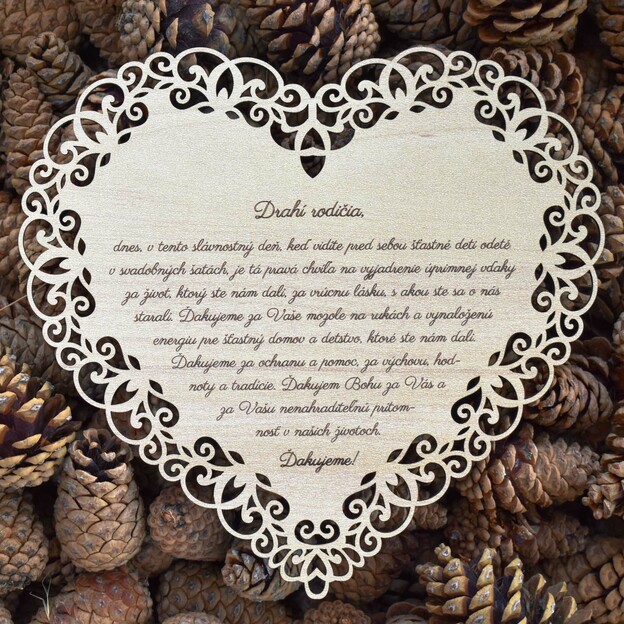 Drahí rodičia,
dnes, v tento slávnostný deň, keď vidíte pred sebou šťastné deti odeté
v svadobných šatách, je tá pravá chvíľa na vyjadrenie úprimnej vďaky
za život, ktorý ste nám dali, za vrúcnu lásku, s akou ste sa o nás
starali. Ďakujeme za Vaše mozole na rukách a vynaloženú
energiu pre šťastný domov a detstvo, ktoré ste nám dali.
Ďakujeme za ochranu a pomoc, za výchovu, hod-
noty a tradície. Ďakujem Bohu za Vás a
za Vašu nenahraditeľnú prítom-
nosť v našich životoch.
Ďakujeme!